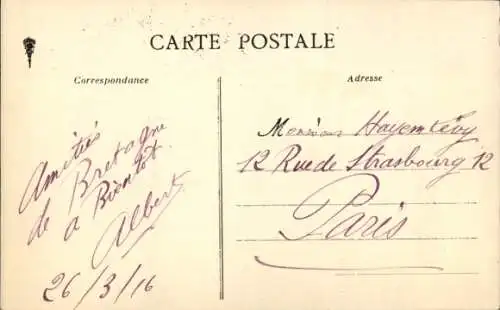 CARTE POSTALE
Correspondance
Amitiés
de Bretagne
a Bientot
Albert
26/3/16
Adresse
Monsieur Hayemlévy
12 Rue de Strasbourg 12
Paris